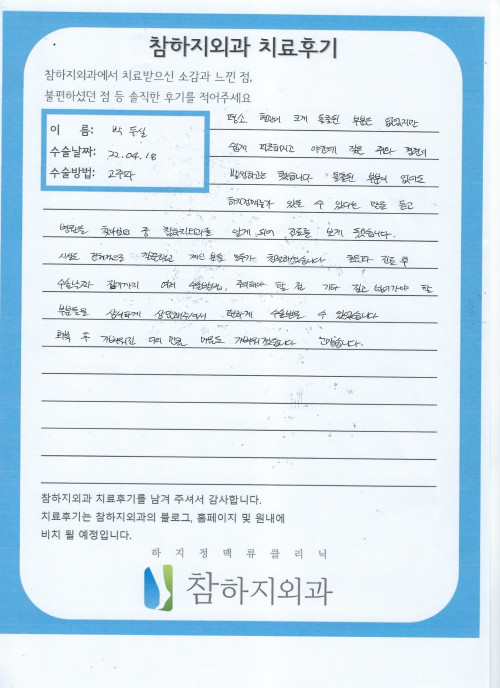 참하지외과 치료후기
참하지외과에서 치료받으신 소감과 느낀 점,
불편하셨던 점 등 솔직한 후기를 적어주세요
이 름: 박 두실
수술날짜: 22.04.18
수술방법: 고주파
평소 혈관이 크게 돌출된 부분은 없었지만
쉽게 피로하시고 야간에 잦은 쥐와 혈관이
발생하고는 했습니다 돌출된 부분이 없어도
하지정맥류가 있을 수 있다는 말을 듣고
병원을 찾아보던 중 참하지외과를 알게 되어 진료를 보게 됐습니다.
시설도 전체적으로 깔끔했고 계신 분들 모두가 친절하셨습니다 진료 후
수술날짜 잡기까지 여러 수술방법, 주의해야 할 점 기타 짚고 넘어가야 할
부분들을 섬세하게 설명해주셔서 편하게 수술받을 수 있었습니다
회복 후 가벼워진 다리 만큼 마음도 가벼워졌습니다 감사합니다.
참하지외과 치료후기를 남겨 주셔서 감사합니다.
치료후기는 참하지외과의 블로그, 홈페이지 및 원내에
비치 될 예정입니다.
하지정맥류클리닉
참하지외과